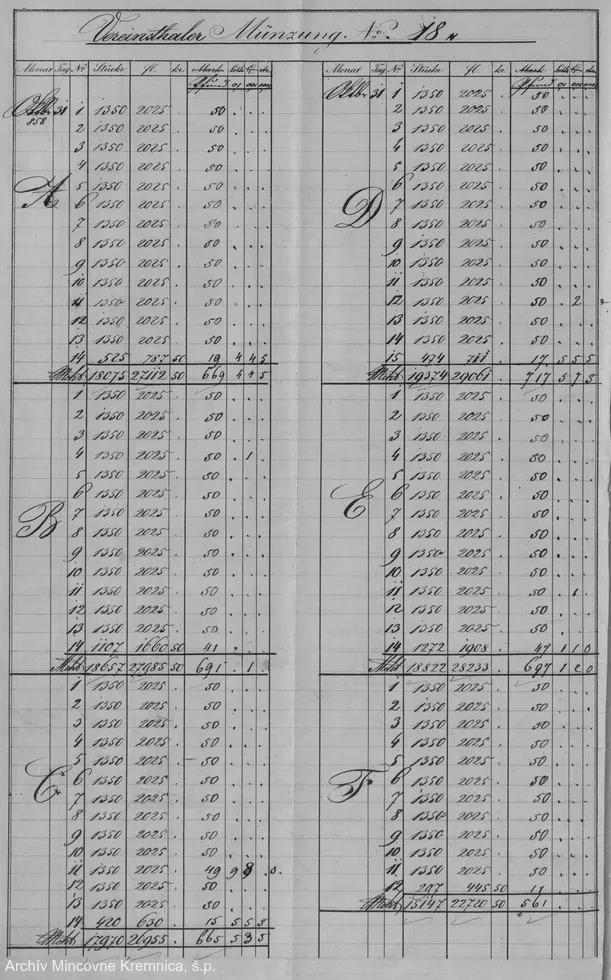 Vereinsthaler Münzung. No. 18
Monat Tag No Stücke fl. kr. Mark
Pfund 01 001 0001
Octbr 31 1 1350 2025 . 50 . . .
858
2 1350 2025 . 50 . . .
3 1350 2025 . 50 . . .
4 1350 2025 . 50 . . .
A
5 1350 2025 . 50 . . .
6 1350 2025 . 50 . . .
7 1350 2025 . 50 . . .
8 1350 2025 . 50 . . .
9 1350 2025 . 50 . . .
10 1350 2025 . 50 . . .
11 1350 2025 . 50 . . .
12 1350 2025 . 50 . . .
13 1350 2025 . 50 . . .
14 525 787 50 19 4 4 5
18075 27112 50 669 4 4 5
1 1350 2025 . 50 . . .
2 1350 2025 . 50 . . .
3 1350 2025 . 50 . . .
4 1350 2025 . 50 . 1 .
5 1350 2025 . 50 . . .
6 1350 2025 . 50 . . .
7 1350 2025 . 50 . . .
B
8 1350 2025 . 50 . . .
9 1350 2025 . 50 . . .
10 1350 2025 . 50 . . .
11 1350 2025 . 50 . . .
12 1350 2025 . 50 . . .
13 1350 2025 . 50 . . .
14 1107 1660 50 41 . . .
18657 27985 50 691 . 1 .
1 1350 2025 . 50 . . .
2 1350 2025 . 50 . . .
3 1350 2025 . 50 . . .
4 1350 2025 . 50 . . .
5 1350 2025 . 50 . . .
C
6 1350 2025 . 50 . . .
7 1350 2025 . 50 . . .
8 1350 2025 . 50 . . .
9 1350 2025 . 50 . . .
10 1350 2025 . 50 . . .
11 1350 2025 . 49 9 8 .
12 1350 2025 . 50 . . .
13 1350 2025 . 50 . . .
14 420 630 . 15 5 5 5
17970 26955 . 665 5 3 5
Monat Tag No Stücke fl. kr. Mark
Pfund 01 001 0001
Octbr 31 1 1350 2025 . 50 . . .
2 1350 2025 . 50 . . .
3 1350 2025 . 50 . . .
4 1350 2025 . 50 . . .
5 1350 2025 . 50 . . .
6 1350 2025 . 50 . . .
D
7 1350 2025 . 50 . . .
8 1350 2025 . 50 . . .
9 1350 2025 . 50 . . .
10 1350 2025 . 50 . . .
11 1350 2025 . 50 . . .
12 1350 2025 . 50 . 2 .
13 1350 2025 . 50 . . .
14 1350 2025 . 50 . . .
15 474 711 . 17 5 5 5
19374 29061 . 717 5 7 5
1 1350 2025 . 50 . . .
2 1350 2025 . 50 . . .
3 1350 2025 . 50 . . .
4 1350 2025 . 50 . . .
5 1350 2025 . 50 . . .
E
6 1350 2025 . 50 . . .
7 1350 2025 . 50 . . .
8 1350 2025 . 50 . . .
9 1350 2025 . 50 . . .
10 1350 2025 . 50 . . .
11 1350 2025 . 50 . 1 .
12 1350 2025 . 50 . . .
13 1350 2025 . 50 . . .
14 1272 1908 . 47 1 1 0
18822 28233 . 697 1 2 0
1 1350 2025 . 50 . . .
2 1350 2025 . 50 . . .
3 1350 2025 . 50 . . .
4 1350 2025 . 50 . . .
5 1350 2025 . 50 . . .
F
6 1350 2025 . 50 . . .
7 1350 2025 . 50 . . .
8 1350 2025 . 50 . . .
9 1350 2025 . 50 . . .
10 1350 2025 . 50 . . .
11 1350 2025 . 50 . . .
12 297 445 50 11 . . .
15147 22720 50 561 . . .
Archív Mincovne Kremnica, š.p.